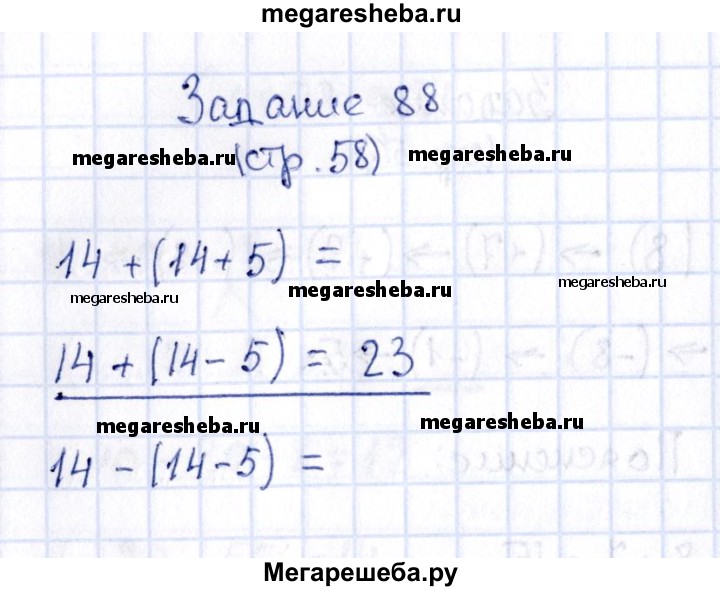 megaresheba.ru
Задание 88
megaresheba.ru (стр. 58) megaresheba.ru
14 + (14 + 5) =
megaresheba.ru megaresheba.ru megaresheba.ru
14 + (14 - 5) = 23
megaresheba.ru megaresheba.ru
14 - (14 - 5) =
Мегарешеба.ру